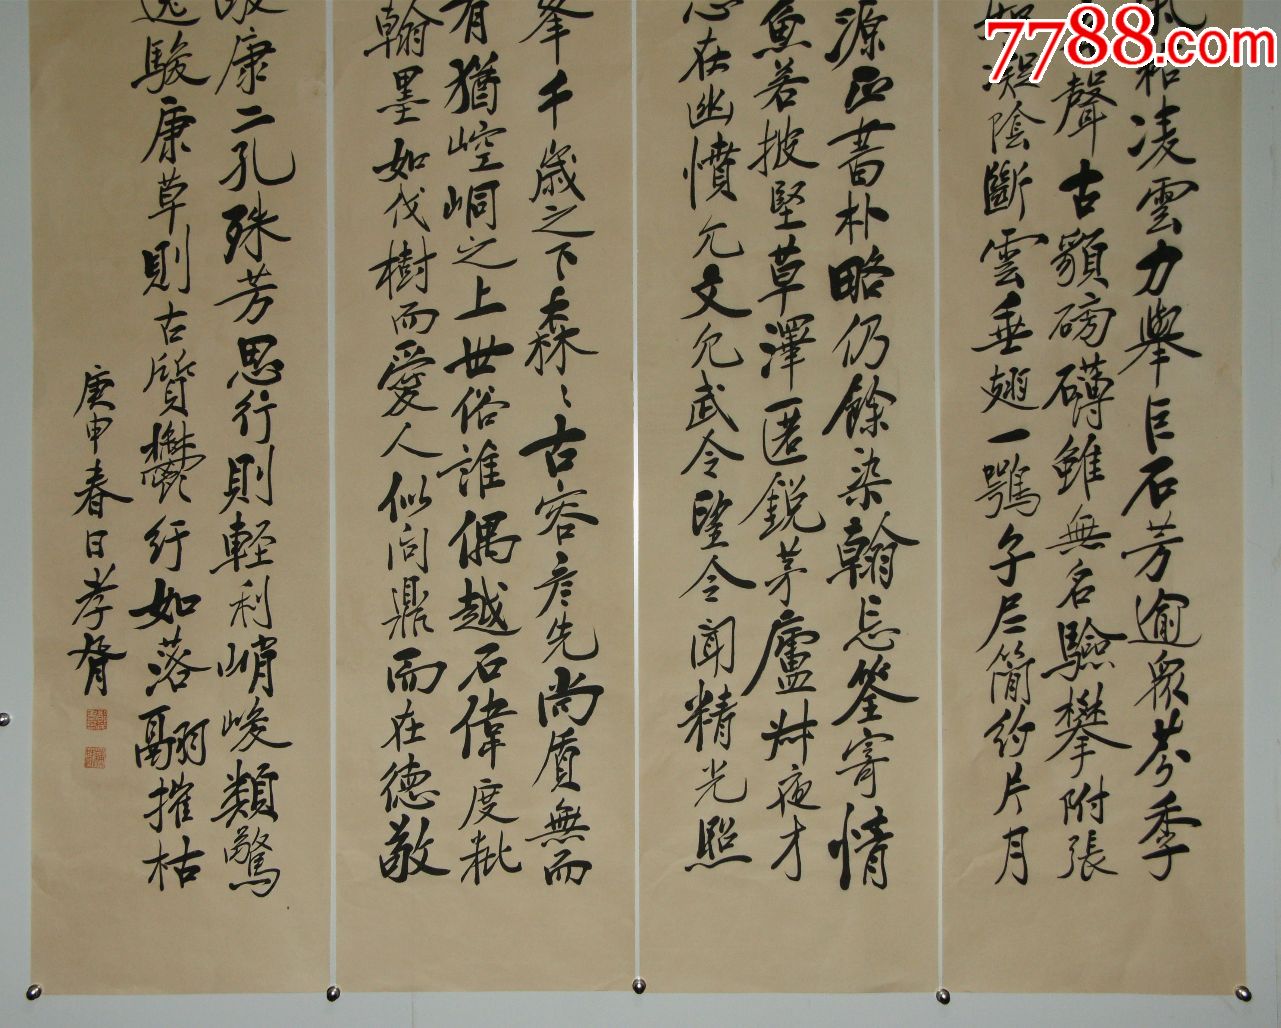 7788.com
凌雲力舉巨石芳逾眾芬季
聲古顏磅礴雖無名驗攀附張
凝陰斷雲垂翅一鶚子尺簡約片月
源正昔朴略仍餘染翰忘筌寄情
魚若披堅草澤匿銳茅廬叔夜才
心在幽憤允文允武令望令聞精光照
峯千歲之下森〻古容彥先尚質無而
有猶崆峒之上世俗誰偶越石偉度秕
翰墨如伐樹而愛人似問鼎而在德敬
康二孔殊芳思行則輕利峭峻類驚
逸駿康草則古質鬱紆如落翮摧枯
庚申春日孝胥